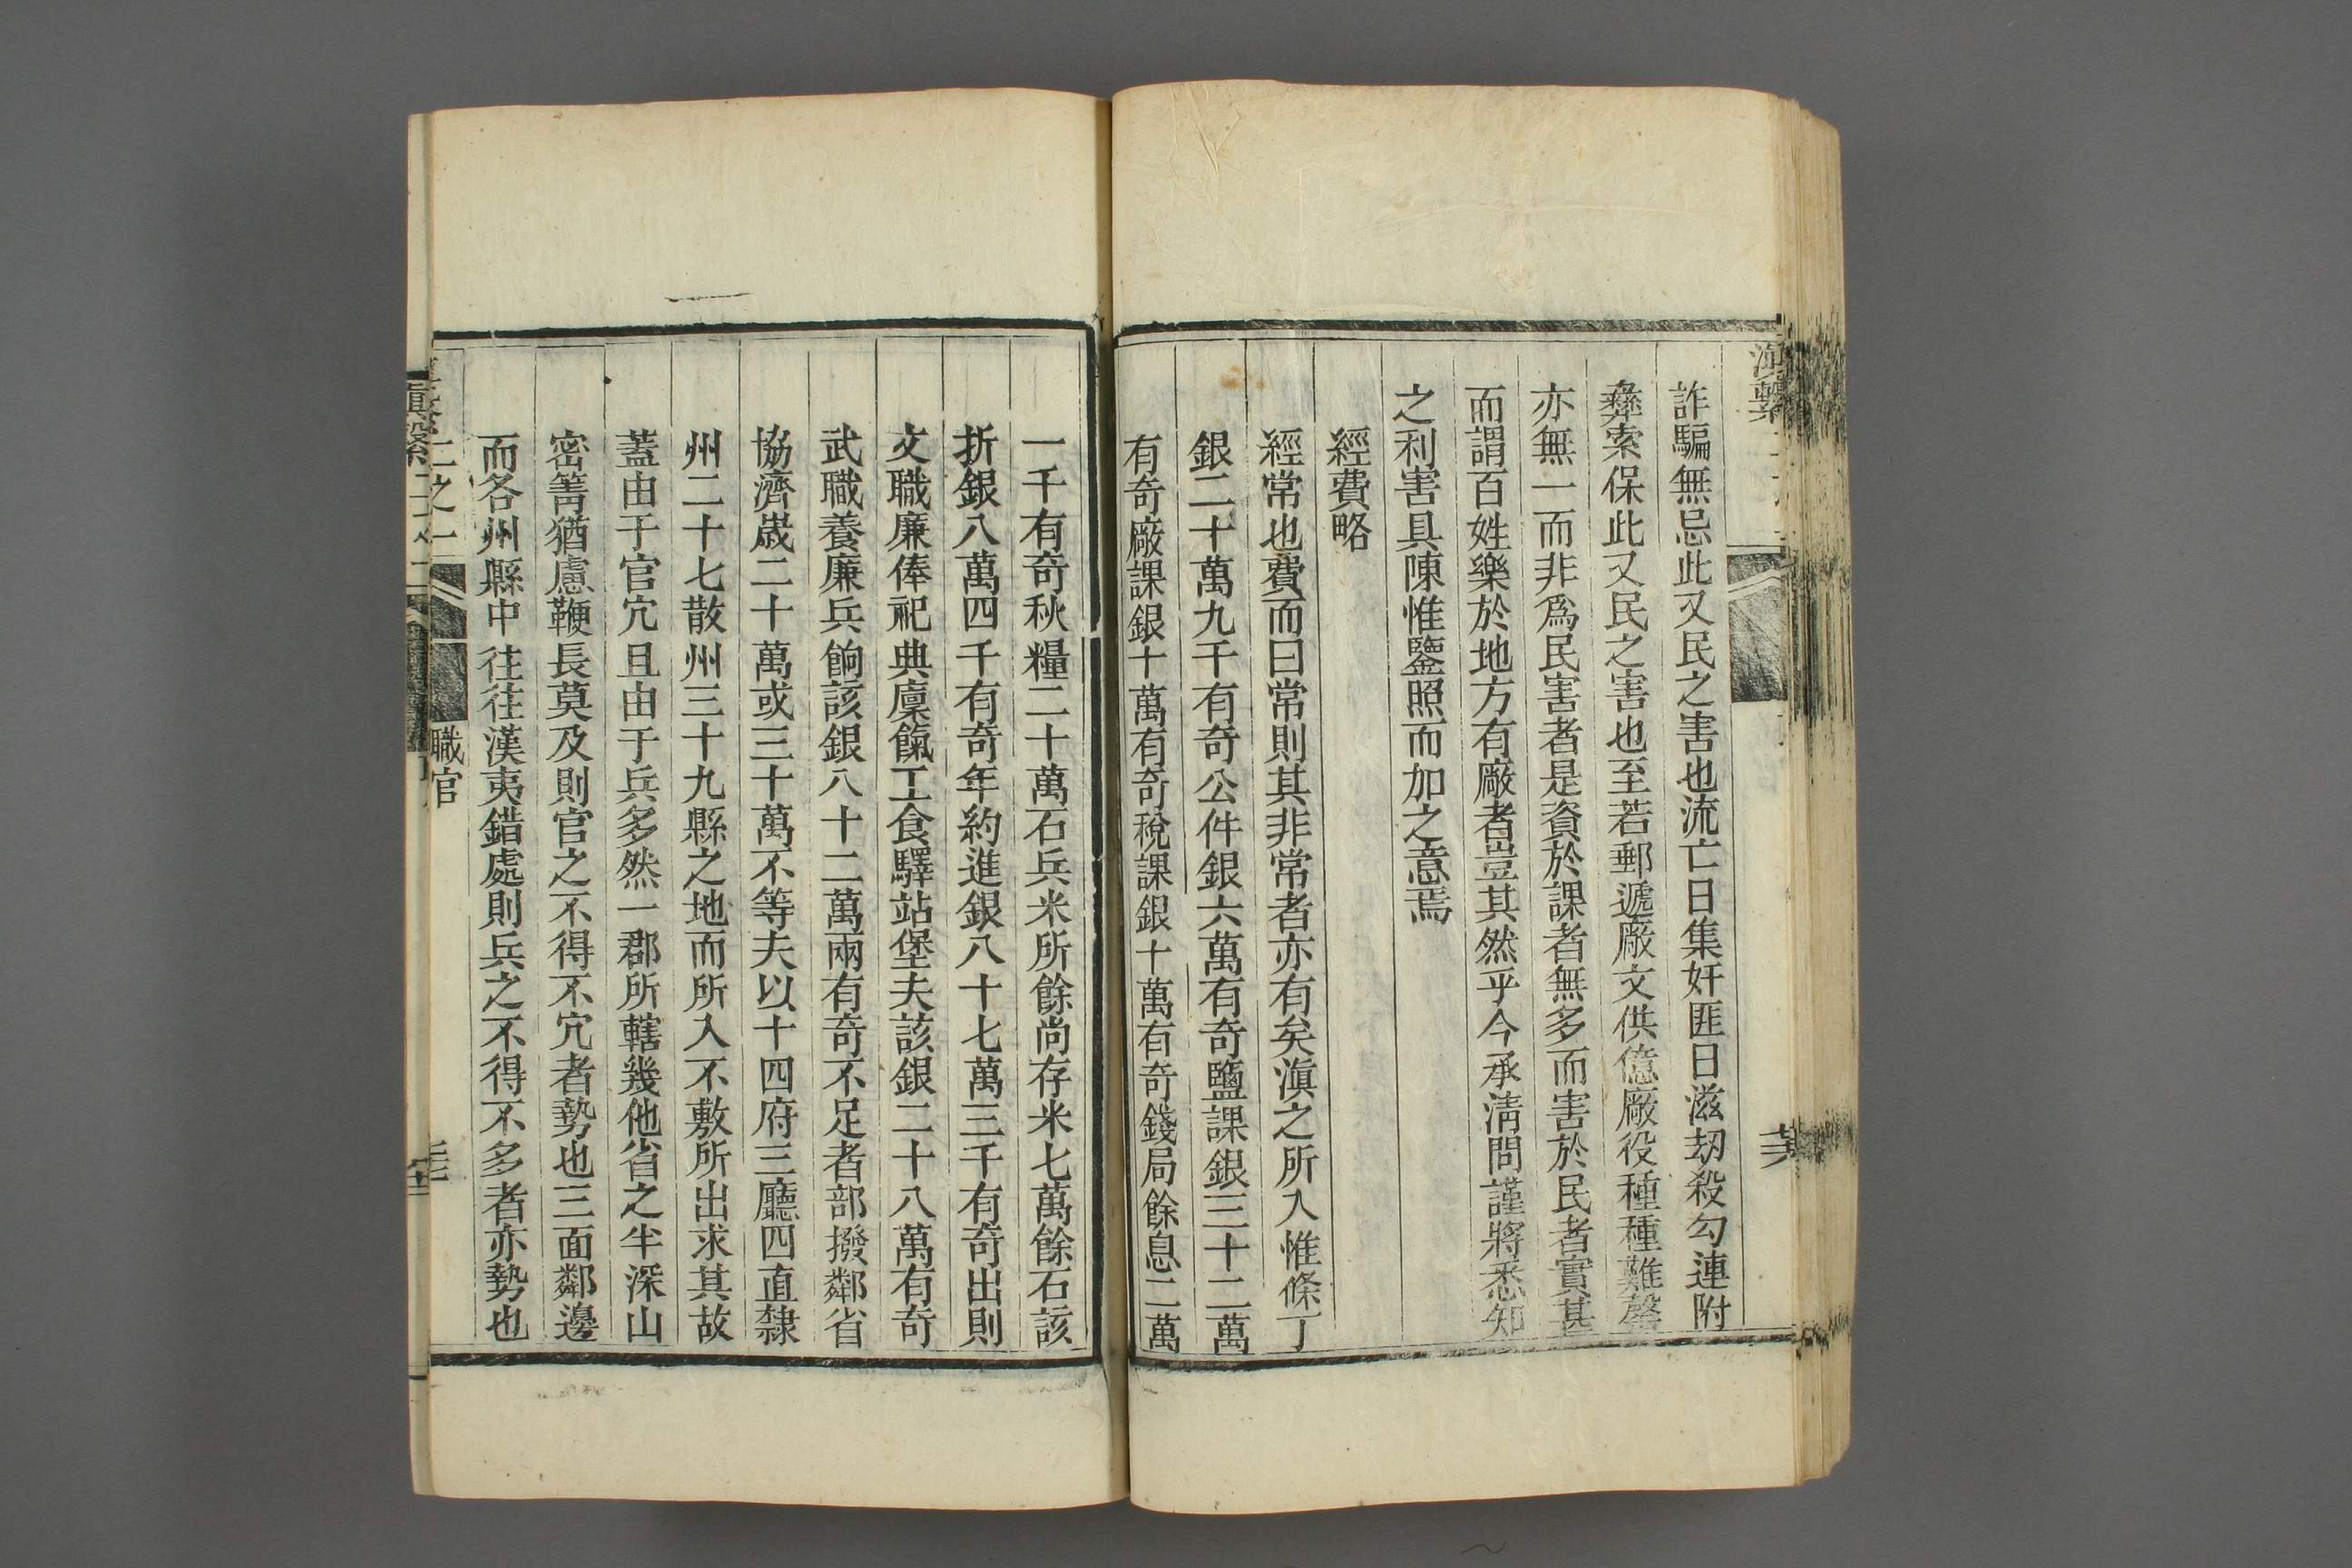 滇繫
詐騙無忌此又民之害也流亡日集奸匪日滋刼殺勾連附
彝索保此又民之害也至若郵遞廠文供億廠役種種難罄
亦無一而非爲民害者是資於課者無多而害於民者實甚
而謂百姓樂於地方有廠者豈其然乎今承淸問謹將悉知
之利害具陳惟鑒照而加之意焉
經費略
經常也費而曰常則其非常者亦有矣滇之所入惟條丁
銀二十萬九千有奇公件銀六萬有奇鹽課銀三十二萬
有奇廠課銀十萬有奇稅課銀十萬有奇錢局餘息二萬
一千有奇秋糧二十萬石兵米所餘尚存米七萬餘石該
折銀八萬四千有奇年約進銀八十七萬三千有奇出則
文職廉俸祀典廩餼工食驛站堡夫該銀二十八萬有奇
武職養廉兵餉該銀八十二萬兩有奇不足者部撥鄰省
協濟歲二十萬或三十萬不等夫以十四府三廳四直隸
州二十七散州三十九縣之地而所入不敷所出求其故
蓋由于官宂且由于兵多然一郡所轄幾他省之半深山
密箐猶慮鞭長莫及則官之不得不宂者勢也三面鄰邊
而各州縣中往往漢夷錯處則兵之不得不多者亦勢也
二之一 職官